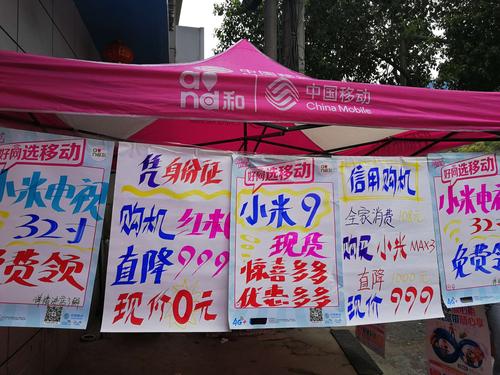 and和
中国移动
China Mobile
好网选移动
小米电视
32寸
免费领
凭身份证
购机 红米
直降999
现价0元
好网选移动
小米9
现货
惊喜多多
优惠多多
4G+
信用购机
全家消费108元
购买小米MAX3
直降1000元
现价999
好网选移动
小米电
32
免费